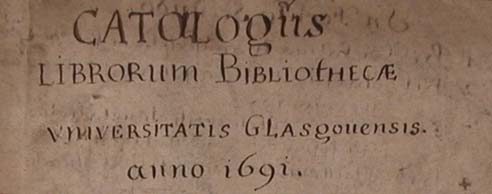 CATALOgus
LIBRORUM BIBLIOthECÆ
VNIVERSITATIS GLASgouENSIS.
anno 1691.